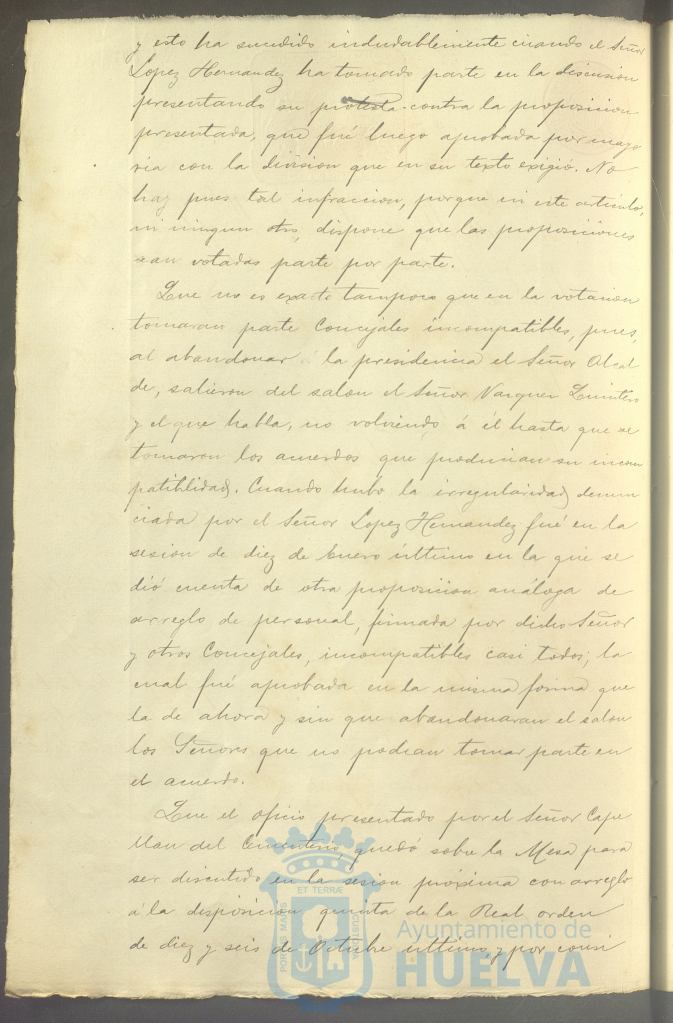 y esto ha sucedido indudablemente cuando el Señor
Lopez Hernandez ha tomado parte en la discusion
presentando su protesta contra la proposicion
presentada, que fué luego aprobada por mayo
ria con la division que en su texto exigió. No
hay pues tal infraccion, porque ni este articulo,
ni ningun otro, dispone que las proposiciones
sean votadas parte por parte.
Que no es exacto tampoco que en la votacion
tomaran parte Concejales incompatibles, pues,
al abandonar la presidencia el Señor Alcal
de, salieron del salon el Señor Vazquez Quintero
y el que habla, no volviendo á él hasta que se
tomaron los acuerdos que producian su incom
patiblidad. Cuando hubo la irregularidad denun
ciada por el Señor Lopez Hernandez fué en la
sesion de diez de Enero último en la que se
dió cuenta de otra proposicion análoga de
arreglo de personal, firmada por dicho Señor
y otros Concejales, incompatibles casi todos; la
cual fué aprobada en la misma forma que
la de ahora y sin que abandonaran el salon
los Señores que no podian tomar parte en
el acuerdo.
Que el oficio presentado por el Señor Cape
llan del Cementerio, quedó sobre la Mesa para
ser discutido en la sesion próxima con arreglo
á la disposicion quinta de la Real orden
de diez y seis de Octubre último, y por consi
ET TERRÆ
PORTUS MARIS
CUSTODIA
Ayuntamiento de
HUELVA